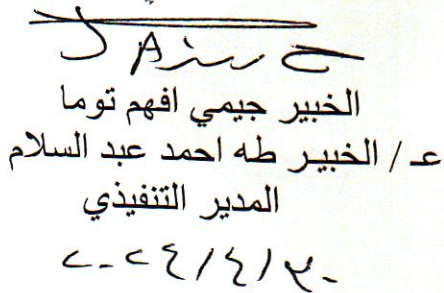 الخبير جيمي افهم توما
عـ / الخبيـر طه احمد عبد السلام
المدير التنفيذي
٢٠٢٤/٤/٣٠